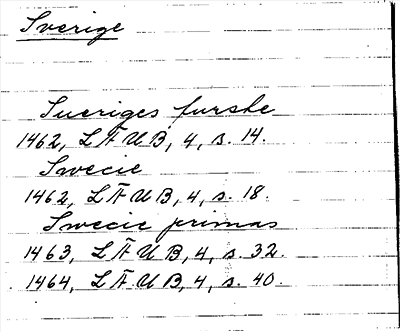 Sverige
Sueriges furste
1462, LÄUB, 4, s. 14.
Swecie
1462, LÄUB, 4, s. 18.
Swecie primas
1463, LÄUB, 4, s. 32.
1464, LÄUB, 4, s. 40.